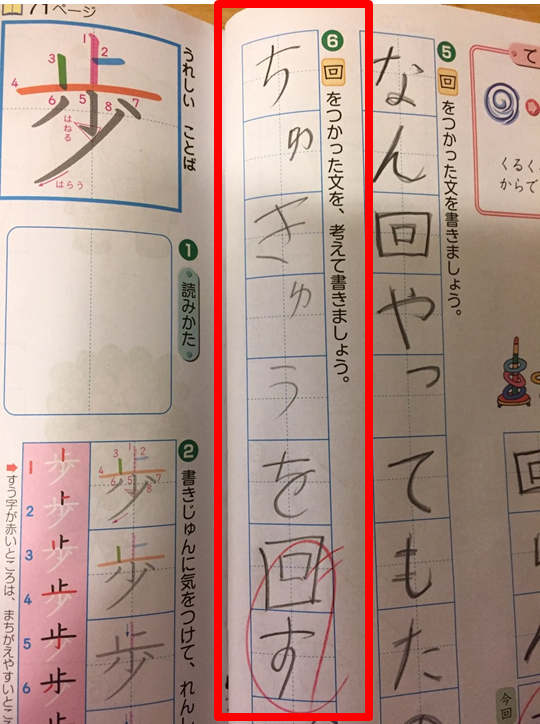 て
くるく
からで
今回
❺ 回をつかった文を書きましょう。
なん回やってもた
❻ 回をつかった文を、考えて書きましょう。
ちゅきゅうを回す
71ページ
うれしい ことば
歩
1 2 3 4 5 6 7 8
はねる
はらう
❶ 読みかた
❷ 書きじゅんに気をつけて、れん
歩
歩
歩
1 歩
2 歩
3 歩
4 歩
5 歩
6 歩
すう字が赤いところは、まちがえやすいとこ